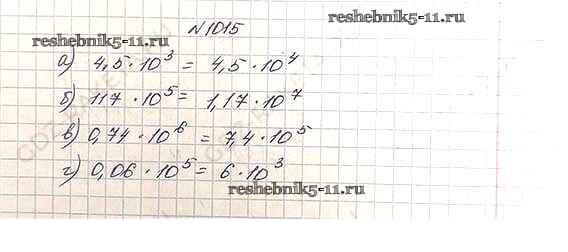 №1015
reshebnik5-11.ru
а) 4,5 · 10³ = 4,5 · 10⁴
б) 117 · 10⁵ = 1,17 · 10⁷
в) 0,74 · 10⁶ = 7,4 · 10⁵
г) 0,06 · 10⁵ = 6 · 10³
reshebnik5-11.ru